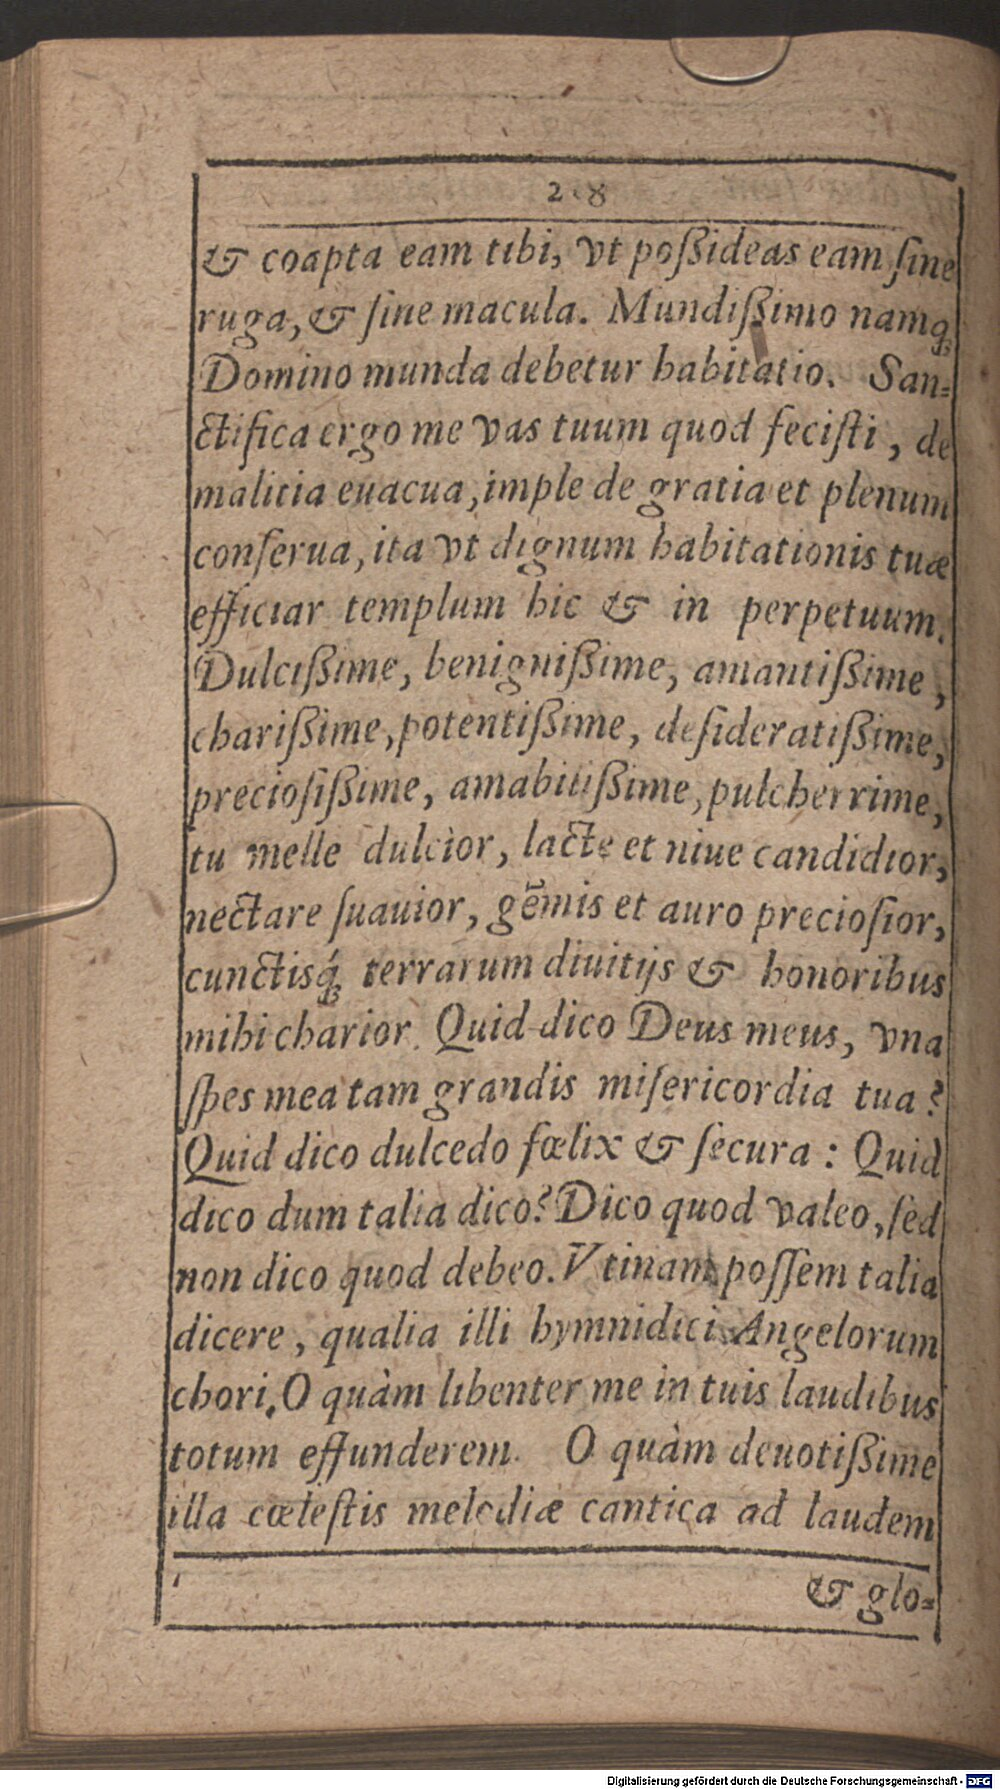 218
& coapta eam tibi, vt poßideas eam ſine
ruga, & ſine macula. Mundißimo namq́;
Domino munda debetur habitatio. San-
ctifica ergo me vas tuum quod feciſti, de
malitia euacua, imple de gratia et plenum
conſerua, ita vt dignum habitationis tuæ
efficiar templum hic & in perpetuum.
Dulcißime, benignißime, amantißime,
charißime, potentißime, deſideratißime,
precioſißime, amabilißime, pulcherrime,
tu melle dulcior, lacte et niue candidior,
nectare ſuauior, gẽmis et auro precioſior,
cunctisq́; terrarum diuitijs & honoribus
mihi charior. Quid dico Deus meus, vna
ſpes mea tam grandis miſericordia tua?
Quid dico dulcedo fœlix & ſecura: Quid
dico dum talia dico? Dico quod valeo, ſed
non dico quod debeo. Vtinam poſſem talia
dicere, qualia illi hymnidici Angelorum
chori. O quàm libenter me in tuis laudibus
totum effunderem. O quàm deuotißime
illa cœleſtis melodiæ cantica ad laudem
& glo-
Digitalisierung gefördert durch die Deutsche Forschungsgemeinschaft - DFG